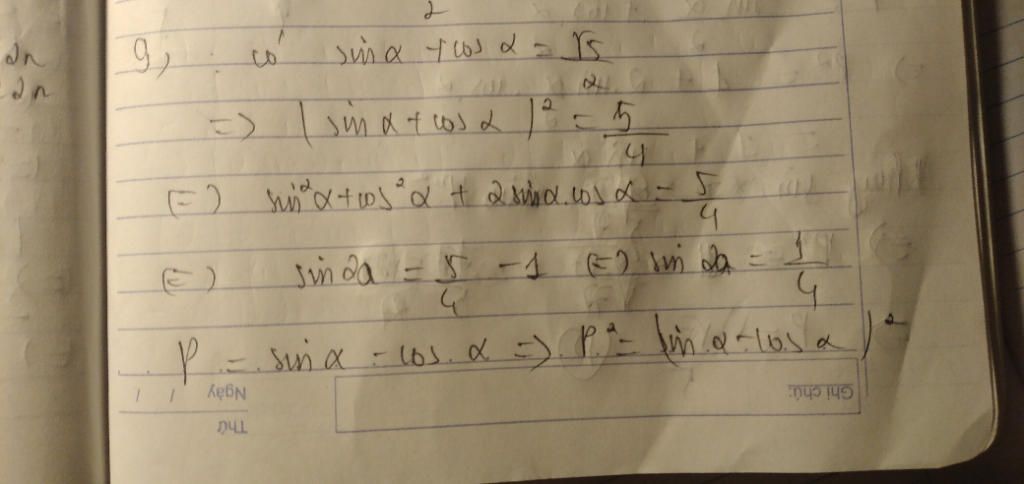 2
2π
9) có sin α + cos α = √5/2
2π
=> (sin α + cos α)² = 5/4
(=) sin²α + cos²α + 2 sin α . cos α = 5/4
(=) sin 2a = 5/4 - 1 (=) sin 2a = 1/4
P = sin α - cos α => P² = (sin α - cos α)²
Ghi chú:
Ngày / /
Thứ